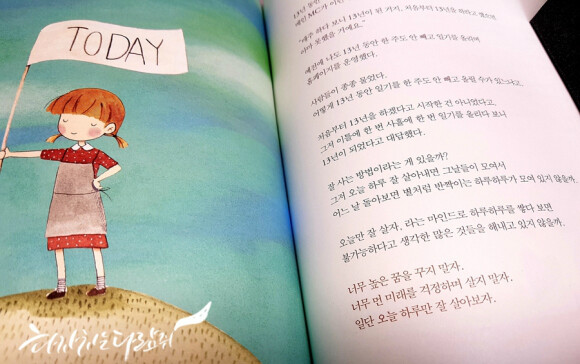 TODAY
13년 동안
메인 MC가 이런
"매주 하다 보니 13년이 된 거지, 처음부터 13년을 하라고 했으면
아마 못했을 거예요."
예전에 나도 13년 동안 한 주도 안 빼고 일기를 올리며
홈페이지를 운영했다.
사람들이 종종 물었다.
어떻게 13년 동안 일기를 한 주도 안 빼고 올릴 수가 있느냐고.
처음부터 13년을 하겠다고 시작한 건 아니었다고,
그저 이틀에 한 번 사흘에 한 번 일기를 올리다 보니
13년이 되었다고 대답했다.
잘 사는 방법이라는 게 있을까?
그저 오늘 하루 잘 살아내면 그날들이 모여서
어느 날 돌아보면 별처럼 반짝이는 하루하루가 모여 있지 않을까.
오늘만 잘 살자, 라는 마인드로 하루하루를 쌓다 보면
불가능하다고 생각한 많은 것들을 해내고 있지 않을까.
너무 높은 꿈을 꾸지 말자.
너무 먼 미래를 걱정하며 살지 말자.
일단 오늘 하루만 잘 살아보자.